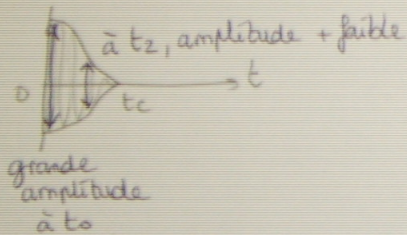 à t2, amplitude + faible
t
0
tc
grande
amplitude
à t0